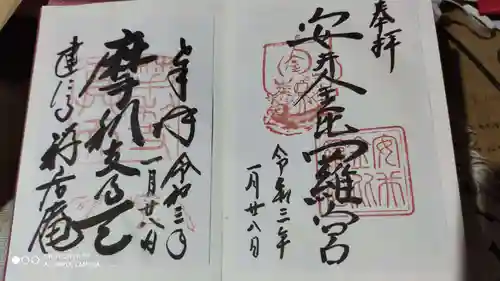 奉拝
安井金比羅宮
令和三年
一月廿八日
奉拝 令和三年
一月廿八日
摩利支尊天
建仁寺 禅居庵